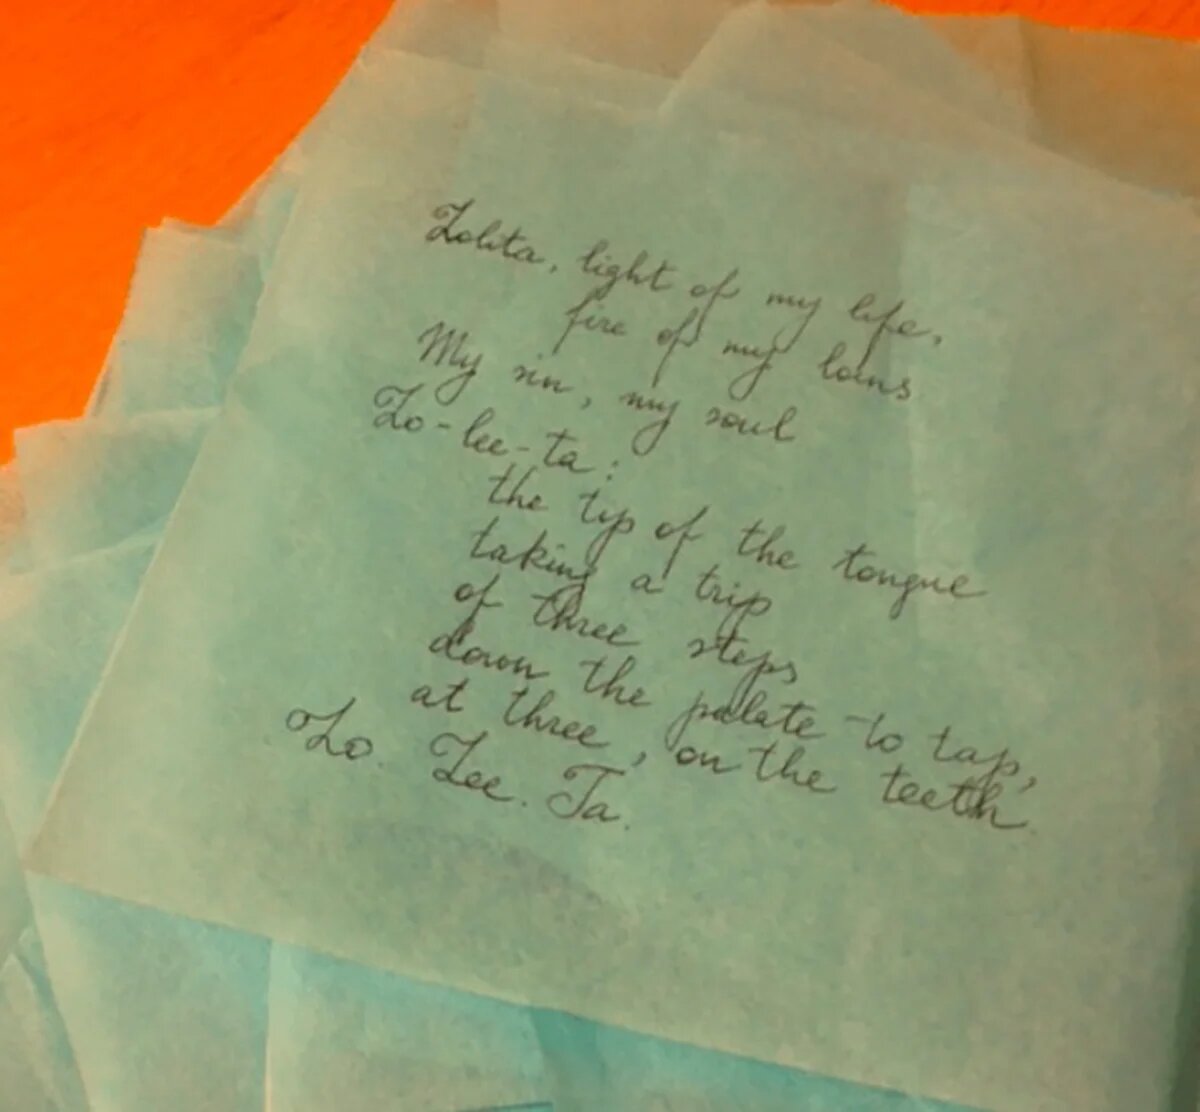 Lolita, light of my life,
fire of my loins
My sin, my soul
Lo-lee-ta:
the tip of the tongue
taking a trip
of three steps
down the palate to tap,
at three, on the teeth.
Lo. Lee. Ta.